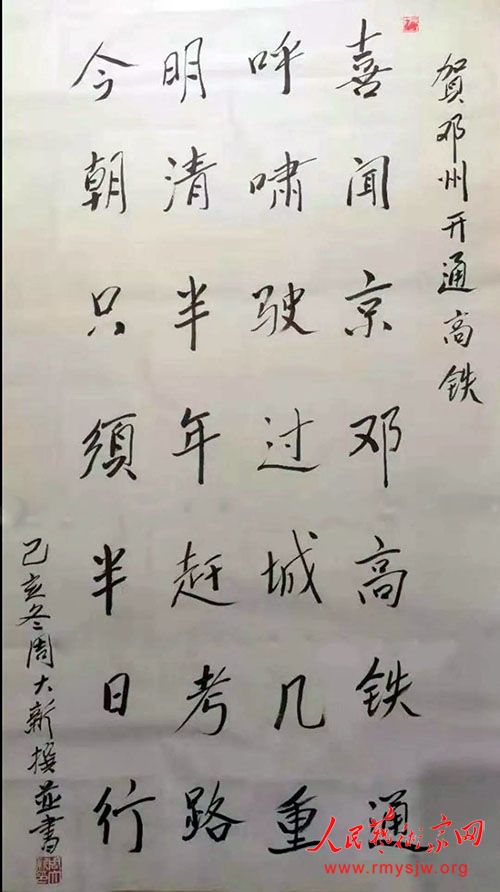 贺邓州开通高铁
喜闻京邓高铁通
呼啸驶过城几重
明清半年赶考路
今朝只须半日行
己亥冬周大新撰并書
人民艺术家网
www.rmysjw.com